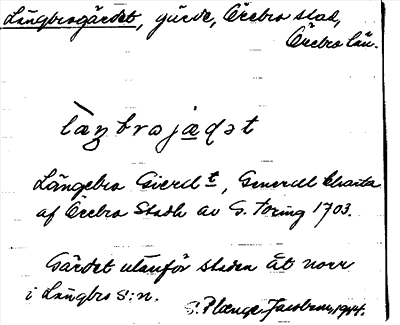 Långbrogärdet, gärde, Örebro stad,
Örebro län.
làŋbrojäḍət
Långebro Gierd t, Generell Charta
af Örebro Stadh av G. Toring 1703.
Gärdet utanför staden åt norr
i Långbro s:n.
S. Plænge Jacobson, 1944.